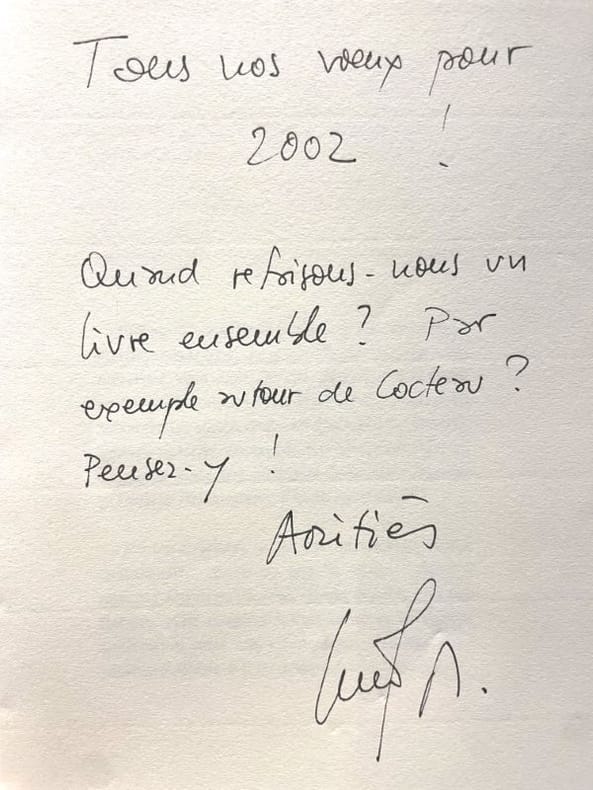 Tous nos voeux pour
2002 !
Quand refaisons-nous un
livre ensemble ? Par
exemple autour de Cocteau ?
Pensez-y !
Amitiés